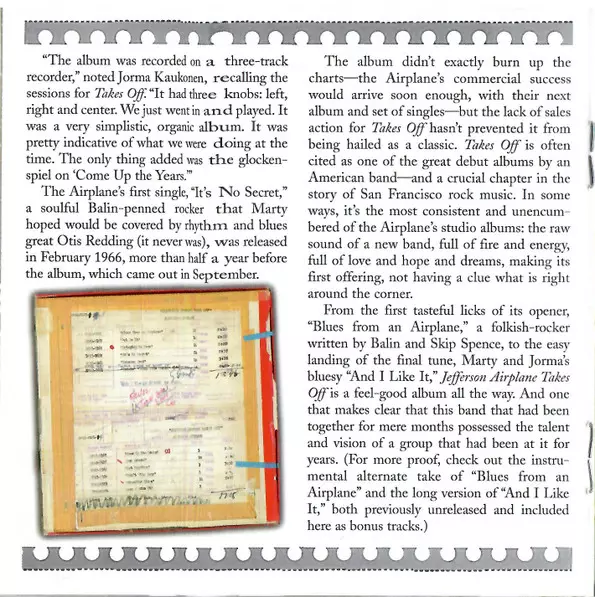 “The album was recorded on a three-track
recorder,” noted Jorma Kaukonen, recalling the
sessions for Takes Off. “It had three knobs: left,
right and center. We just went in and played. It
was a very simplistic, organic album. It was
pretty indicative of what we were doing at the
time. The only thing added was the glocken-
spiel on ‘Come Up the Years.’”
The Airplane’s first single, “It’s No Secret,”
a soulful Balin-penned rocker that Marty
hoped would be covered by rhythm and blues
great Otis Redding (it never was), was released
in February 1966, more than half a year before
the album, which came out in September.
The album didn’t exactly burn up the
charts—the Airplane’s commercial success
would arrive soon enough, with their next
album and set of singles—but the lack of sales
action for Takes Off hasn’t prevented it from
being hailed as a classic. Takes Off is often
cited as one of the great debut albums by an
American band—and a crucial chapter in the
story of San Francisco rock music. In some
ways, it’s the most consistent and unencum-
bered of the Airplane’s studio albums: the raw
sound of a new band, full of fire and energy,
full of love and hope and dreams, making its
first offering, not having a clue what is right
around the corner.
From the first tasteful licks of its opener,
“Blues from an Airplane,” a folkish-rocker
written by Balin and Skip Spence, to the easy
landing of the final tune, Marty and Jorma’s
bluesy “And I Like It,” Jefferson Airplane Takes
Off is a feel-good album all the way. And one
that makes clear that this band that had been
together for mere months possessed the talent
and vision of a group that had been at it for
years. (For more proof, check out the instru-
mental alternate take of “Blues from an
Airplane” and the long version of “And I Like
It,” both previously unreleased and included
here as bonus tracks.)